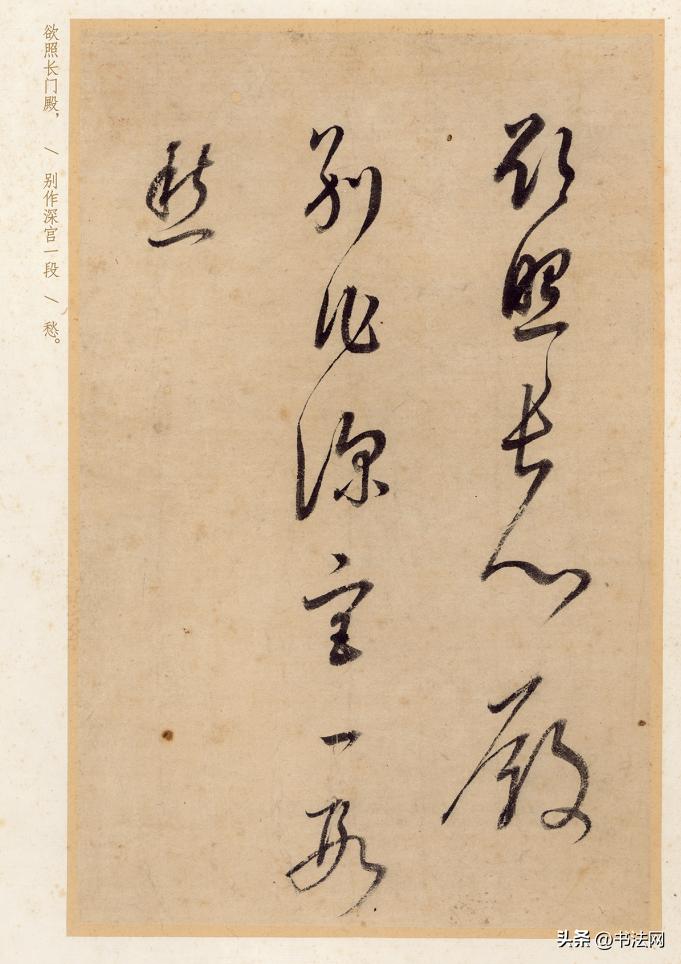 欲照長門殿
別作深宮一段
愁
欲照长门殿， \ 别作深宫一段 \ 愁。
头条 @书法网